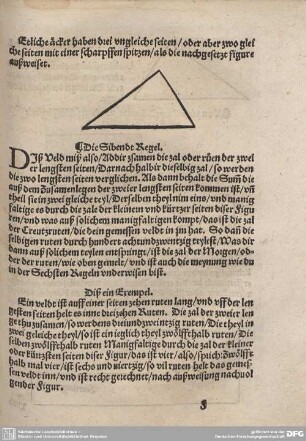 Etliche äcker haben drei vngleiche seiten / oder aber zwo glei
che seiten mit einer scharpffen spitzen / als die nachgesetzt figure
außweiset.
¶Die Sibendt Regel.
DIß Veld miß also / Addir zsamen die zal oder růten der zwei
er lengsten seiten / Darnach halbir dieselbig zal / so werden
die zwo lengsten seiten verglichen. Als dann behalt die Sum̃ die
auß dem Zusamenlegen der zweier lengsten seiten kommen ist / vñ
theil sie in zwei gleiche teyl / Derselben theyl nim eins / vnd manig
faltige es durch die zale der kleinern vnd kürtzer seiten diser Figu
ren / vnd was auß solichem manigfaltigen kompt / das ist die zal
der Creutzruten / die dein gemessen veldt in jm hat. So daß die
selbigen ruten durch hundert achtundzwentzig teylest / Was dir
dann auß solichem teylen entspringt / ist die zal der Morgen / od-
der der ruten / wie oben gemelt / vnd ist auch die meynung wie du
in der Sechsten Regeln vnderwisen bist.
Diß ein Exempel.
Ein veldt ist auff einer seiten zehen ruten lang / vnd vff der len
gesten seiten helt es inne dreizehen Ruten. Die zal der zweier len
gsten zusamen / so werdens dreiundzweintzig ruten / Die theyl in
zwei gleiche theyl / so ist ein ieglich theyl zwölffthalb ruten / Die
selben zwölffthalb ruten Manigfaltige durch die zal der kleiner
oder kürtzsten seiten diser Figur / das ist vier / also / spich: Zwölfft-
halb mal vier / ist sechs und viertzig / so vil ruten helt das gemes-
sen veldt inn / vnd ist recht gerechnet / nach außweisung nachuol
gender Figur.